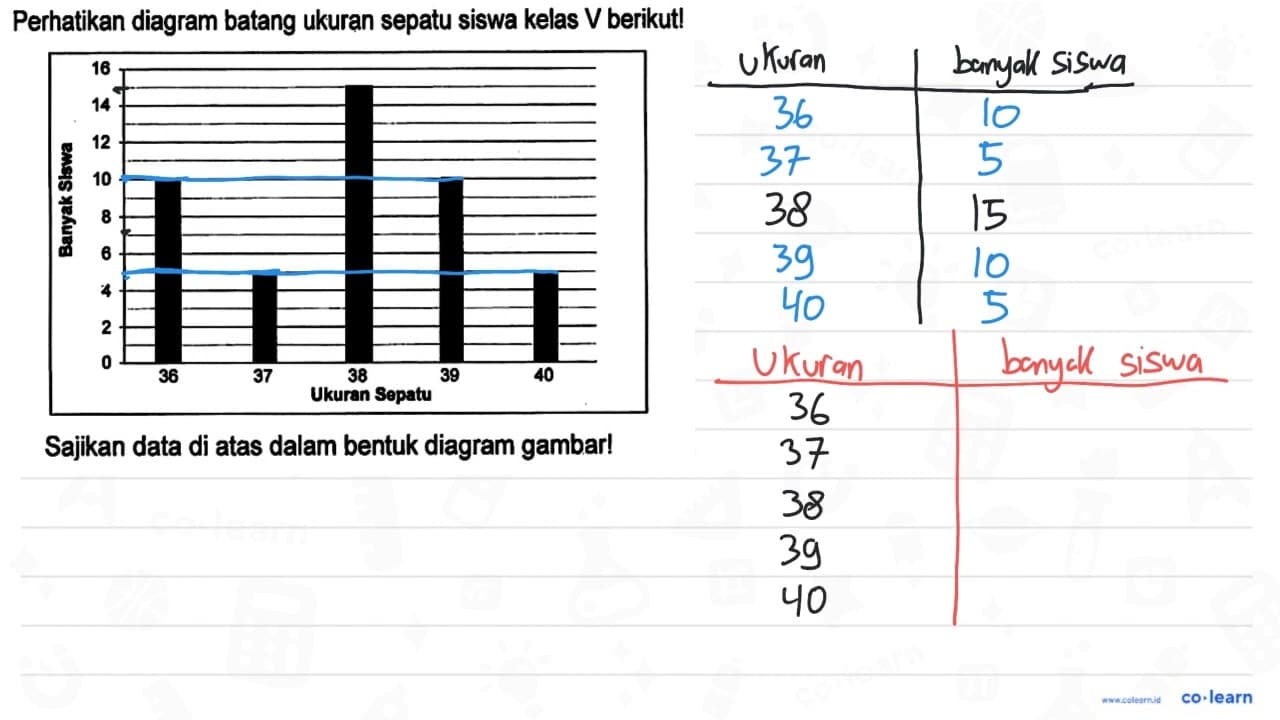 Perhatikan diagram batang ukuran sepatu siswa kelas V berikut!
16
14
12
10
8
6
4
2
0
Banyak Siswa
36 37 38 39 40
Ukuran Sepatu
Sajikan data di atas dalam bentuk diagram gambar!
Ukuran banyak siswa
36 10
37 5
38 15
39 10
40 5
Ukuran banyak siswa
36
37
38
39
40
co·learn
co·learn
co·learn
co·learn
www.colearn.id co·learn